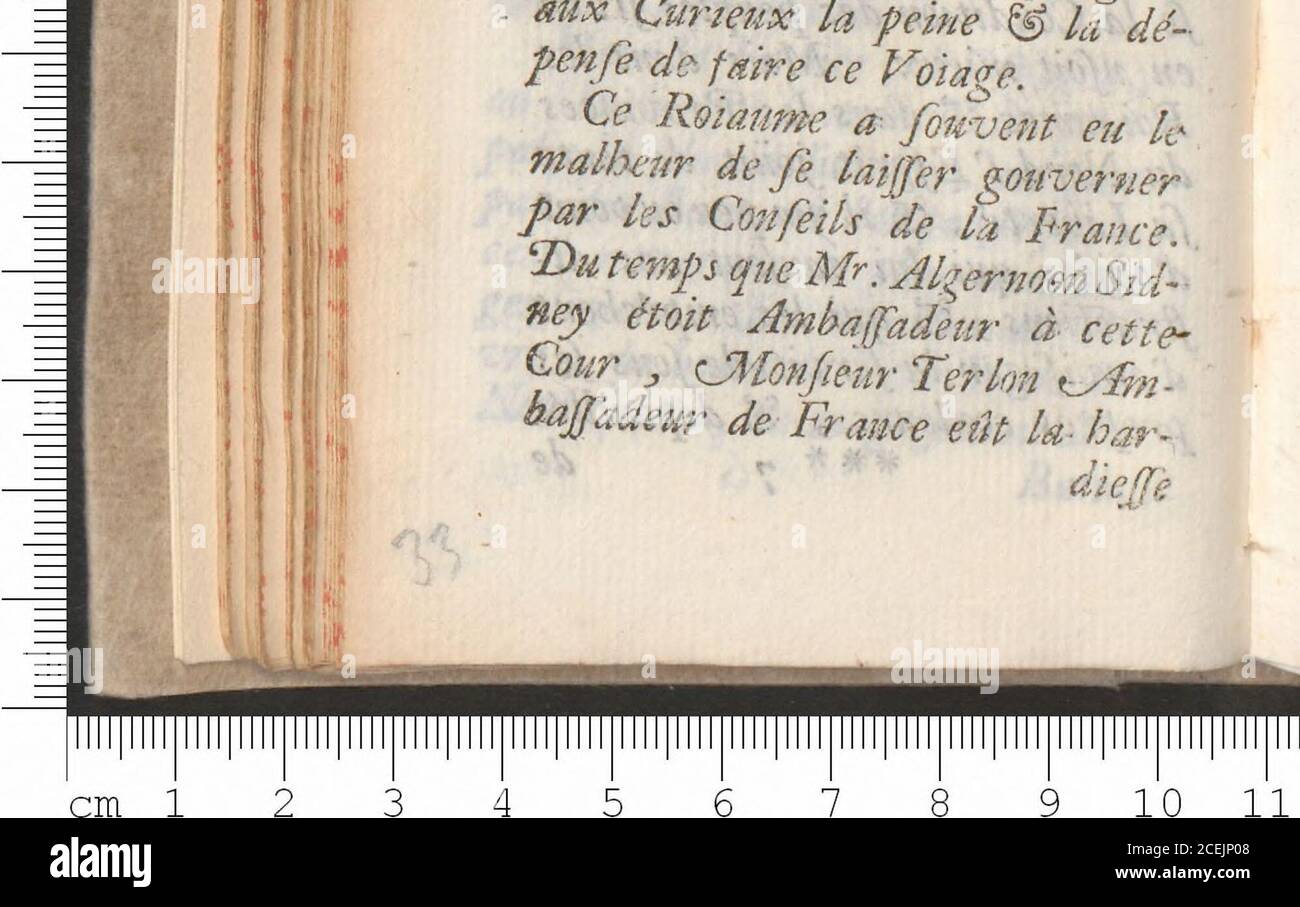 aux Curieux la peine & la dé-
penſe de faire ce Voiage.
Ce Roiaume a ſouvent eu le
malheur de ſe laiſſer gouverner
par les Conſeils de la France.
Du temps que Mr. Algernoon Sid-
ney étoit Ambaſſadeur à cette
Cour, Monſieur Terlon Am-
baſſadeur de France eût la har-
dieſſe
33
cm 1 2 3 4 5 6 7 8 9 10 11
alamy
Image ID: 2CEJP08
www.alamy.com